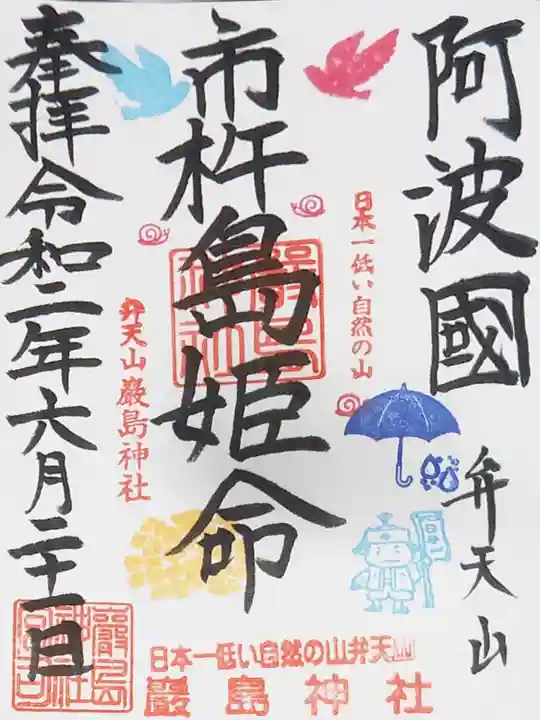 阿波國
弁天山
日本一低い自然の山
市杵島姫命
嚴島神社
弁天山巌島神社
奉拝令和二年六月二十一日
日本一低い自然の山弁天山
巌島神社